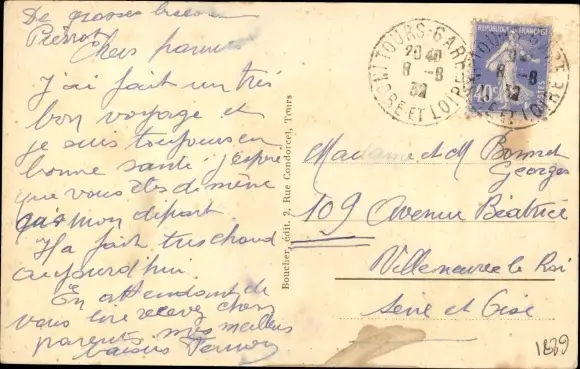 De grosses bises de
Pierrot
Chers parents
J'ai fait un très
bon voyage et
je suis toujours en
bonne santé j'espère
que vous êtes de même
qu'à mon départ
Il a fait très chaud
aujourd'hui
En attendant de
vous lire recevez chers
parents mes meilleurs
baisers
Bouclier, édit. 2, Rue Condorcet, Tours
TOURS-GARE
20 40
8 -8
32
INDRE ET LOIRE
REPUBLIQUE FRANÇAISE
40c
POSTES
Madame et M Bonnet
Georges
109 Avenue Béatrice
Villeneuve le Roi
Seine et Oise
1879